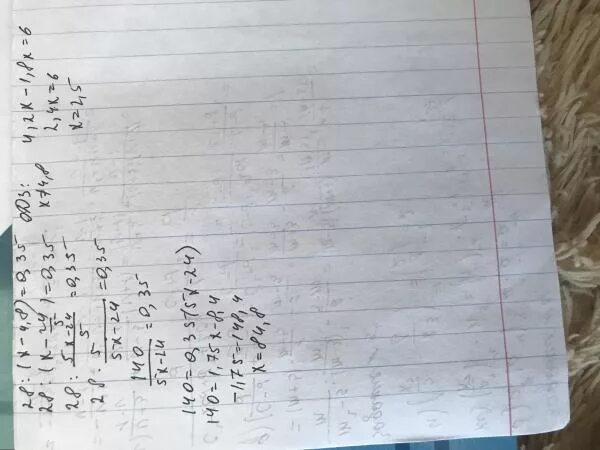 28 : (x - 4,8) = 0,35
28 : (x - 24/5) = 0,35
28 : (5x-24)/5 = 0,35
28 · 5/(5x-24) = 0,35
140/(5x-24) = 0,35
140 = 0,35(5x-24)
140 = 1,75x-8,4
-1,75=-148,4
x = 84,8
ОДЗ:
x≠4,8
4,2x - 1,8x = 6
2,4x = 6
x = 2,5